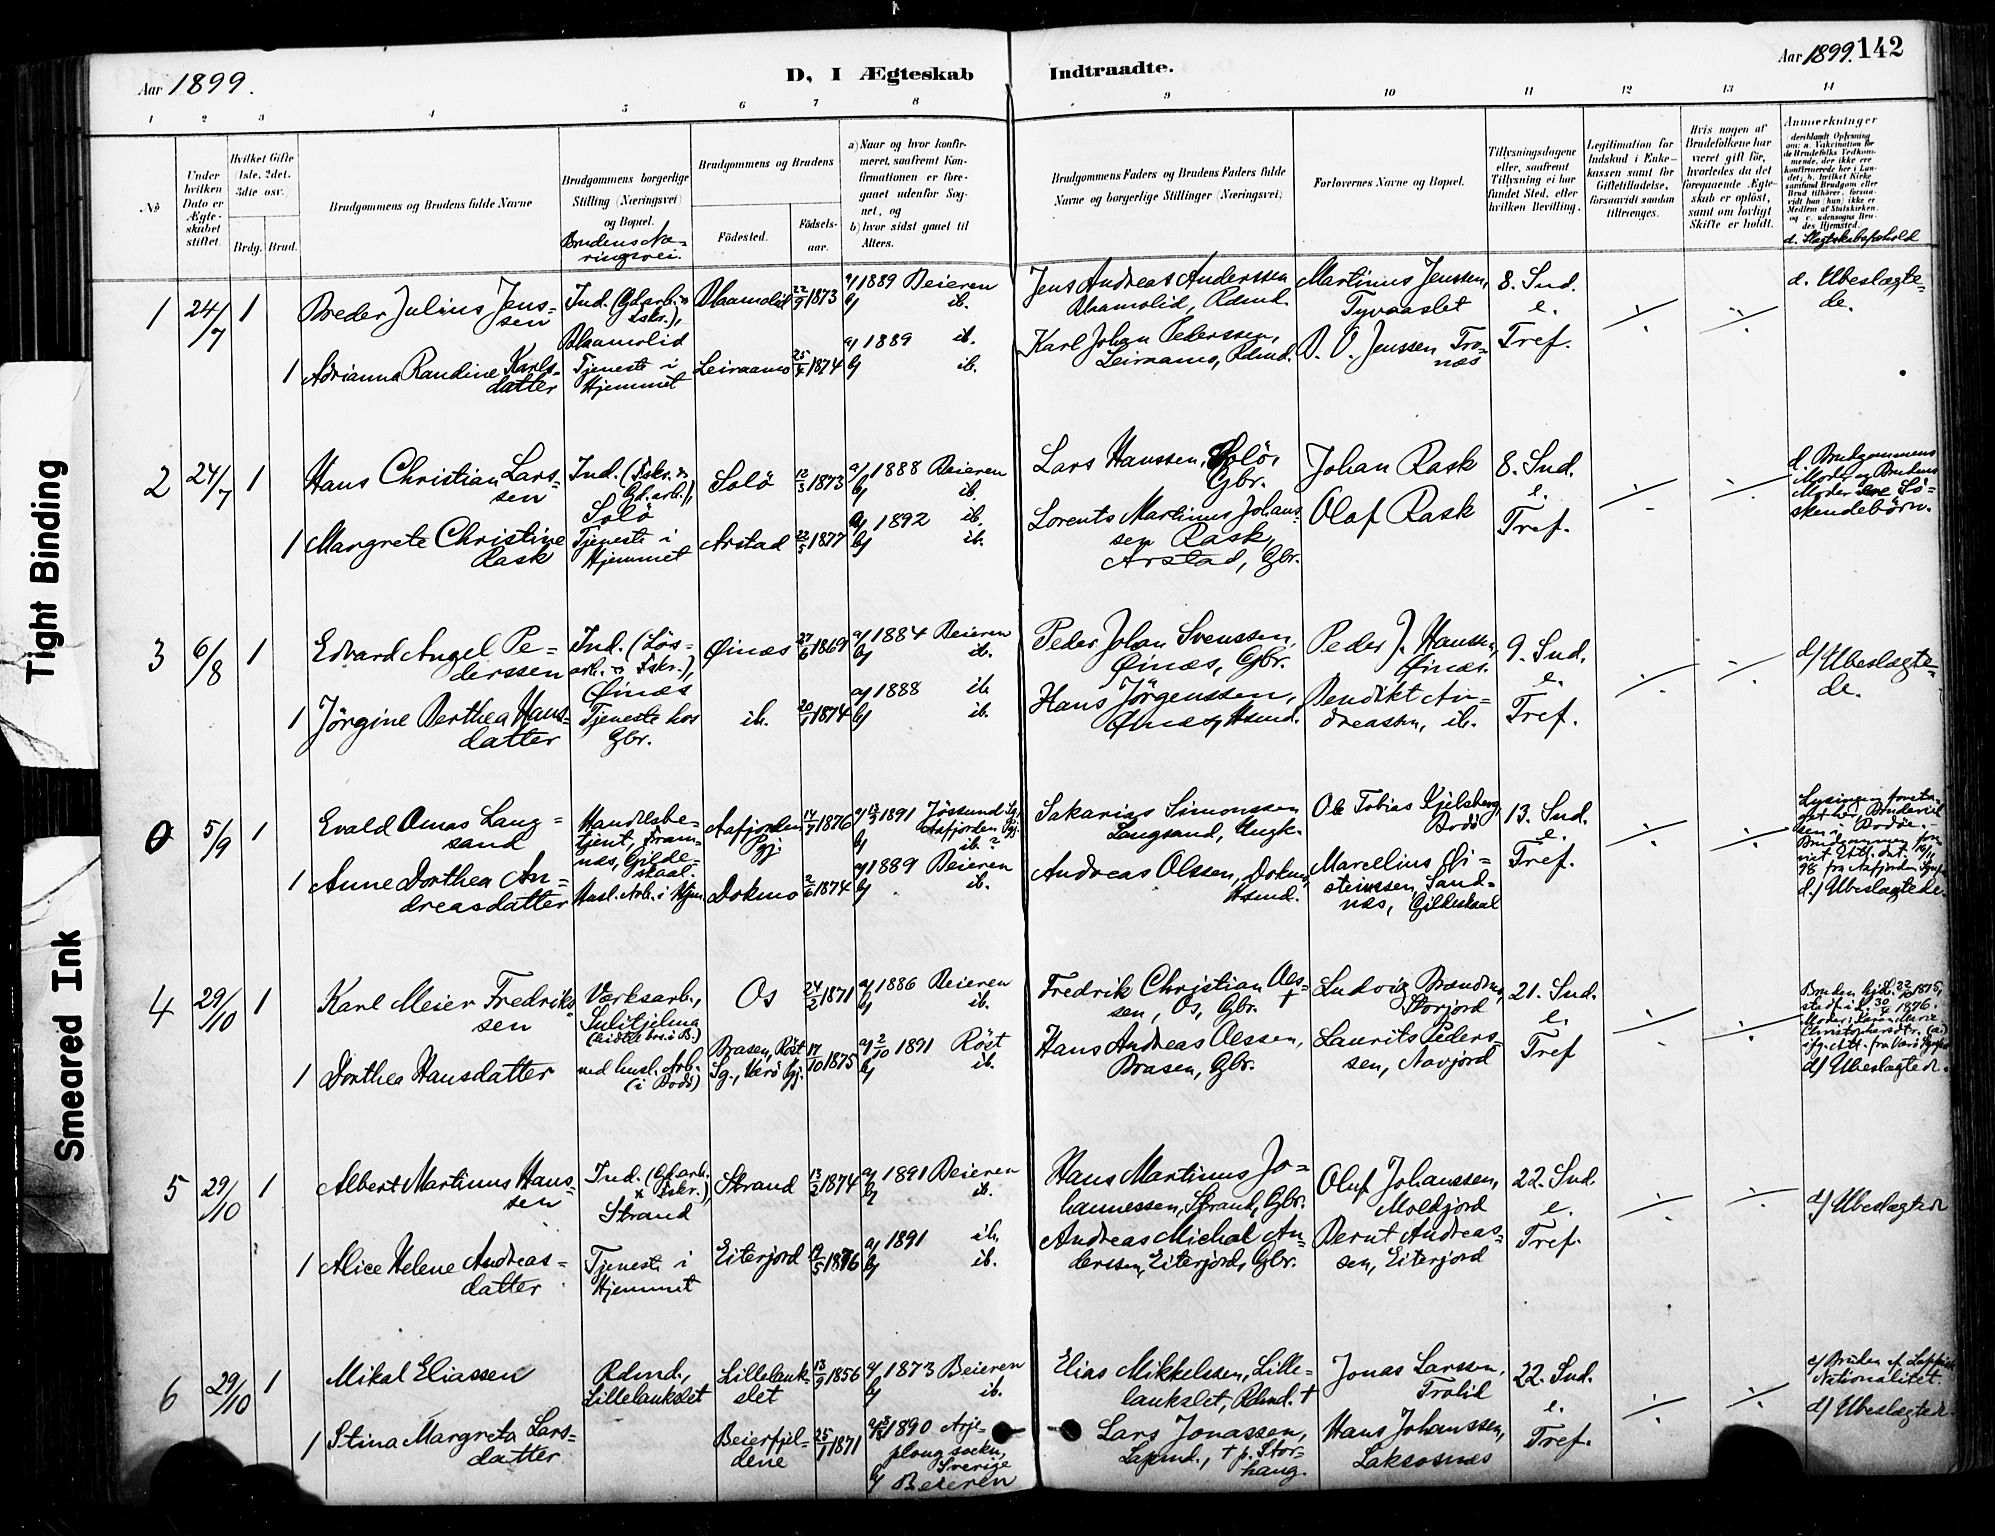 Aar 1899.
D, I Ægteskab Indtraadte.
Aar 1899. 142
1 2 3 4 5 6 7 8 9 10 11 12 13 14
No
Under hvilken Dato er Ægteskabet stiftet.
Hvilket Gifte (1ste, 2det, 3die osv.)
Brdg. Brud.
Brudgommens og Brudens fulde Navne
Brudgommens borgerlige Stilling (Næringsvei) og Bopæl.
Brudens Næringsvei.
Brudgommens og Brudens
Fødested.
Fødselsaar.
a) Naar og hvor konfirmeret, saafremt Konfirmationen er foregaaet udenfor Sognet, og
b) hvor sidst gaaet til Alters.
Brudgommens Faders og Brudens Faders fulde Navne og borgerlige Stillinger (Næringsvei)
Forlovernes Navne og Bopæl.
Tillysningsdagene eller, saafremt Tillysning ei har fundet Sted, efter hvilken Bevilling.
Legitimation for Indskud i Enkekassen samt for Giftetilladelse, forsaavidt saadan tiltrænges.
Hvis nogen af Brudefolkene har været gift før, hvorledes da det foregaaende Ægteskab er opløst, samt om lovligt Skifte er holdt.
Anmerkninger
d. Slagtskabsforhold
1 24/7 1
Peder Julius Jenssen
Ind. (Gd.arb. & Fskr.),
22/9 1873
a) 1889 Beieren
b) ib.
Jens Andreas Anderssen
Martinus Jenssen,
8. Snd. e. Tref.
d. Ubeslægtede.
1 Adrianna Randine Karlsdatter
Tjeneste i Hjemmet
Leiraamo
25/4 1874
a) 1889 ib.
b) ib.
Karl Johan Pederssen, Leiraamo, Rdmd.
2 24/7 1
Hans Christian Larssen
Ind. (Fskr. & Gd.arb.), Solö
Solö
12/3 1873
a) 1888 Beieren
b) ib.
Lars Hanssen, Solö, Gbr.
Johan Rask
8. Snd. e. Tref.
d. Brudgommens Moder og Brudens Moder ere Söskendebörn.
1 Margrete Christine Rask
Tjeneste i Hjemmet
Arstad
22/5 1877
a) 1892 ib.
b) ib.
Lorents Martinus Johanssen Rask, Arstad, Gbr.
Olaf Rask
3 6/8 1
Edvard Angel Pederssen
Ind. (Løsarb. & Fskr.), Øinæs
Øinæs
27/6 1869
a) 1884 Beieren
b) ib.
Peder Johan Svenssen, Øinæs, Gbr.
Peder J. Hanssen, Øinæs.
9. Snd. e. Tref.
d) Ubeslægtede.
1 Jörgine Berthea Hansdatter
Tjeneste hos Gbr.
ib.
20/1 1874
a) 1888 ib.
b) ib.
Hans Jörgenssen, Øinæs, Hsmd.
Bendikt Andreassen, ib.
0 5/9 1
Evald Omas Langsand
Handelsbetjent, Framnæs, Gildeskaal.
Aafjorden Pgj.
14/7 1876
1891
Sakarias Simonssen Langsand, Ungk.
Ole Tobias Kjelsberg, Bodö
13. Snd. e. Tref.
d) Ubeslægtede.
1 Anne Dorthea Andreasdatter
Husl. Arb. i Hjem
Dokmo
2/6 1874
a) 1889 Beieren
b) ib.
Andreas Olssen, Dokmo, Hsmd.
Marcellius Øisteinssen, Sandnæs, Gildeskaal
4 29/10 1
Karl Meier Fredrikssen
Værksarb., Sulitjelma
Os
24/2 1871
a) 1886 Beieren
b) ib.
Fredrik Christian Olessen, Os, Gbr. †
Ludvig Brændmo, Storjord
21. Snd. e. Tref
d) Ubeslægtede.
1 Dorthea Hansdatter
ved husl. Arb. (i Bodö)
Brasen, Röst Sg., Værö Pgj.
17/10 1875
a) 2/10 1891 Röst
b) ib.
Hans Andreas Olessen, Brasen, Gbr.
Laurits Pederssen, Navjord
5 29/10 1
Albert Martinus Hanssen
Ind. (Gd.arb. & Fskr.) Strand
Strand
13/2 1874
a) 1891 Beieren
b) ib.
Hans Martinus Johannessen, Strand, Gbr.
Oluf Johanssen, Moldjord
22. Snd. e. Tref.
d) Ubeslægtede
1 Alice Helene Andreasdatter
Tjeneste i Hjemmet
Eiterjord
19/5 1876
a) 1891 ib.
b) ib.
Andreas Michal Anderssen, Eiterjord, Gbr.
Bernt Andreassen, Eiterjord
6 29/10 1
Mikal Eliassen
Rdmd., Lillelankslet
Lillelankslet
13/9 1856
a) 1873 Beieren
b) ib.
Elias Mikkelssen, Lillelankslet, Rdmd. †
Jonas Larssen, Trolid
22. Snd. e. Tref.
c) Bruden af Lappisk Nationalitet.
d) Ubeslægtede.
1 Stina Margreta Larsdatter
Beierfjeldene
25/1 1871
1890 Arjeploug socken, Sverige
b) Beieren
Lars Jonassen, Lapmd., † p. Storhaug.
Hans Johanssen, Laksosnæs
Tight Binding
Smeared Ink